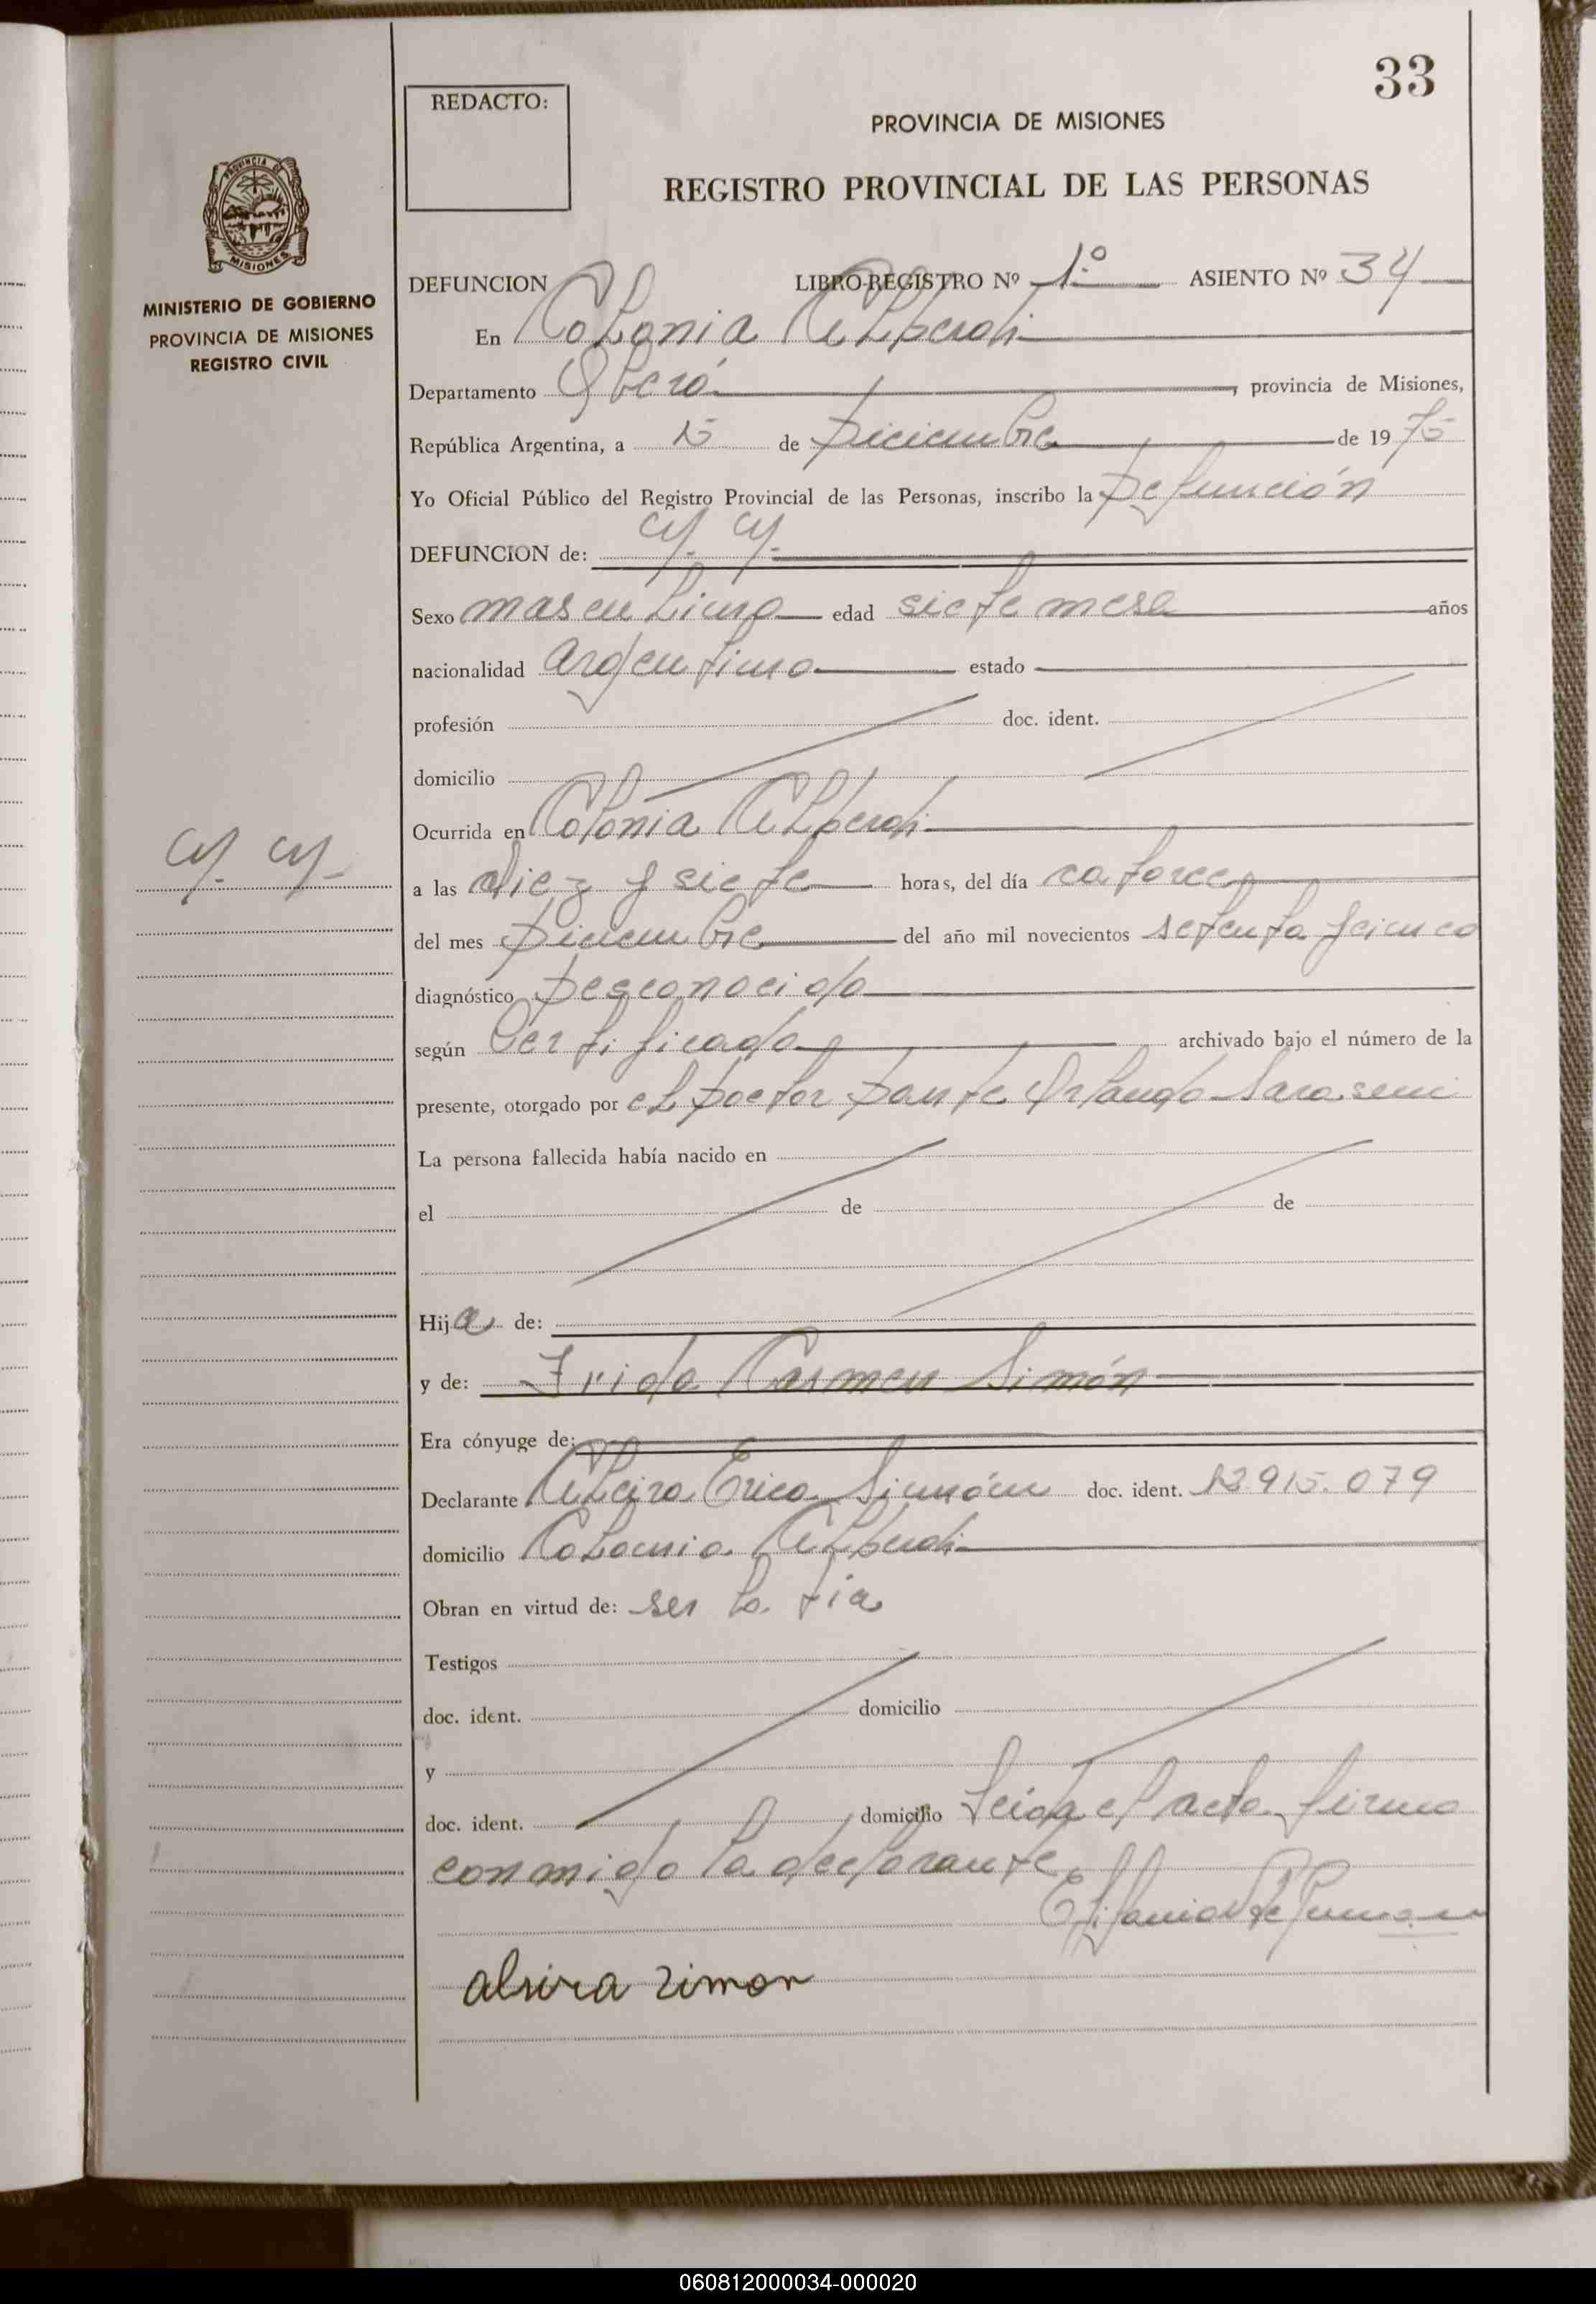 33
REDACTO:
PROVINCIA DE MISIONES
REGISTRO PROVINCIAL DE LAS PERSONAS
PROVINCIA DE
MISIONES
MINISTERIO DE GOBIERNO
PROVINCIA DE MISIONES
REGISTRO CIVIL
DEFUNCION LIBRO-REGISTRO Nº 1º ASIENTO Nº 34
En Colonia Alberdi
Departamento Oberá, provincia de Misiones,
República Argentina, a 15 de Diciembre de 1975
Yo Oficial Público del Registro Provincial de las Personas, inscribo la Defunción
DEFUNCION de:
Sexo masculino edad siete mese años
nacionalidad argentino estado
profesión doc. ident.
domicilio
Ocurrida en Colonia Alberdi
a las diez y siete horas, del día catorce
del mes Diciembre del año mil novecientos setenta y cinco
diagnóstico Desconocido
según Certificado archivado bajo el número de la
presente, otorgado por el Doctor Dante Orlando
La persona fallecida había nacido en
el de de
Hija de:
y de: Frida Carmen Simón
Era cónyuge de:
Declarante Erica Simón doc. ident. 13.915.079
domicilio Colonia Alberdi
Obran en virtud de: ser la tia
Testigos
doc. ident. domicilio
y
doc. ident. domicilio Leida el acta firma
conmigo la declarante
alsira zimon
060812000034-000020